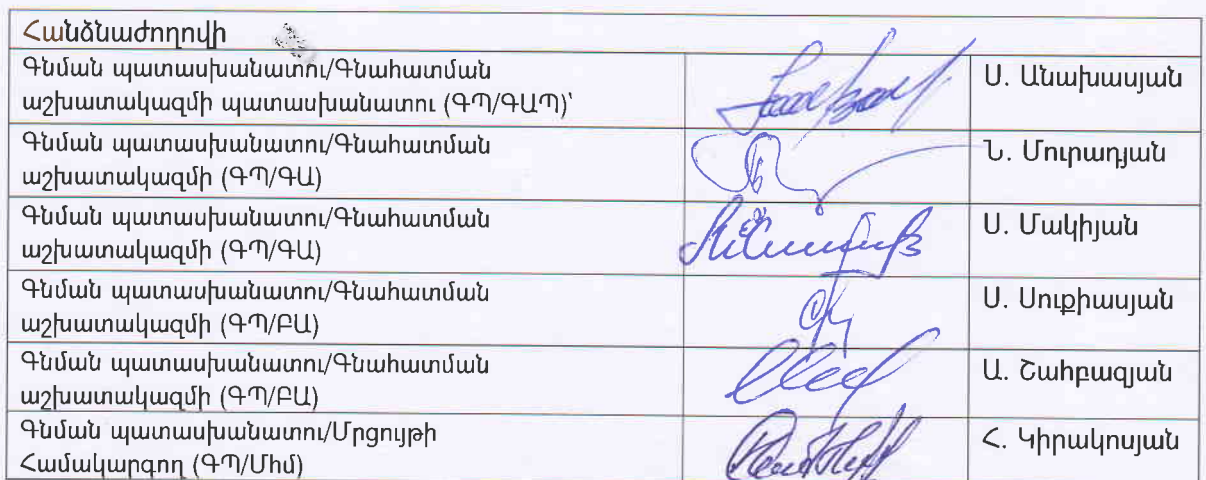 Հանձնաժողովի
Գնման պատասխանատու/Գնահատման
աշխատակազմի պատասխանատու (ԳՊ/ԳԱՊ)՝
Ս. Անախասյան
Գնման պատասխանատու/Գնահատման
աշխատակազմի (ԳՊ/ԳԱ)
Ն. Մուրադյան
Գնման պատասխանատու/Գնահատման
աշխատակազմի (ԳՊ/ԳԱ)
Ս. Մակիյան
Գնման պատասխանատու/Գնահատման
աշխատակազմի (ԳՊ/ԲԱ)
Ս. Սուքիասյան
Գնման պատասխանատու/Գնահատման
աշխատակազմի (ԳՊ/ԲԱ)
Ա. Շահբազյան
Գնման պատասխանատու/Մրցույթի
Համակարգող (ԳՊ/Մհմ)
Հ. Կիրակոսյան